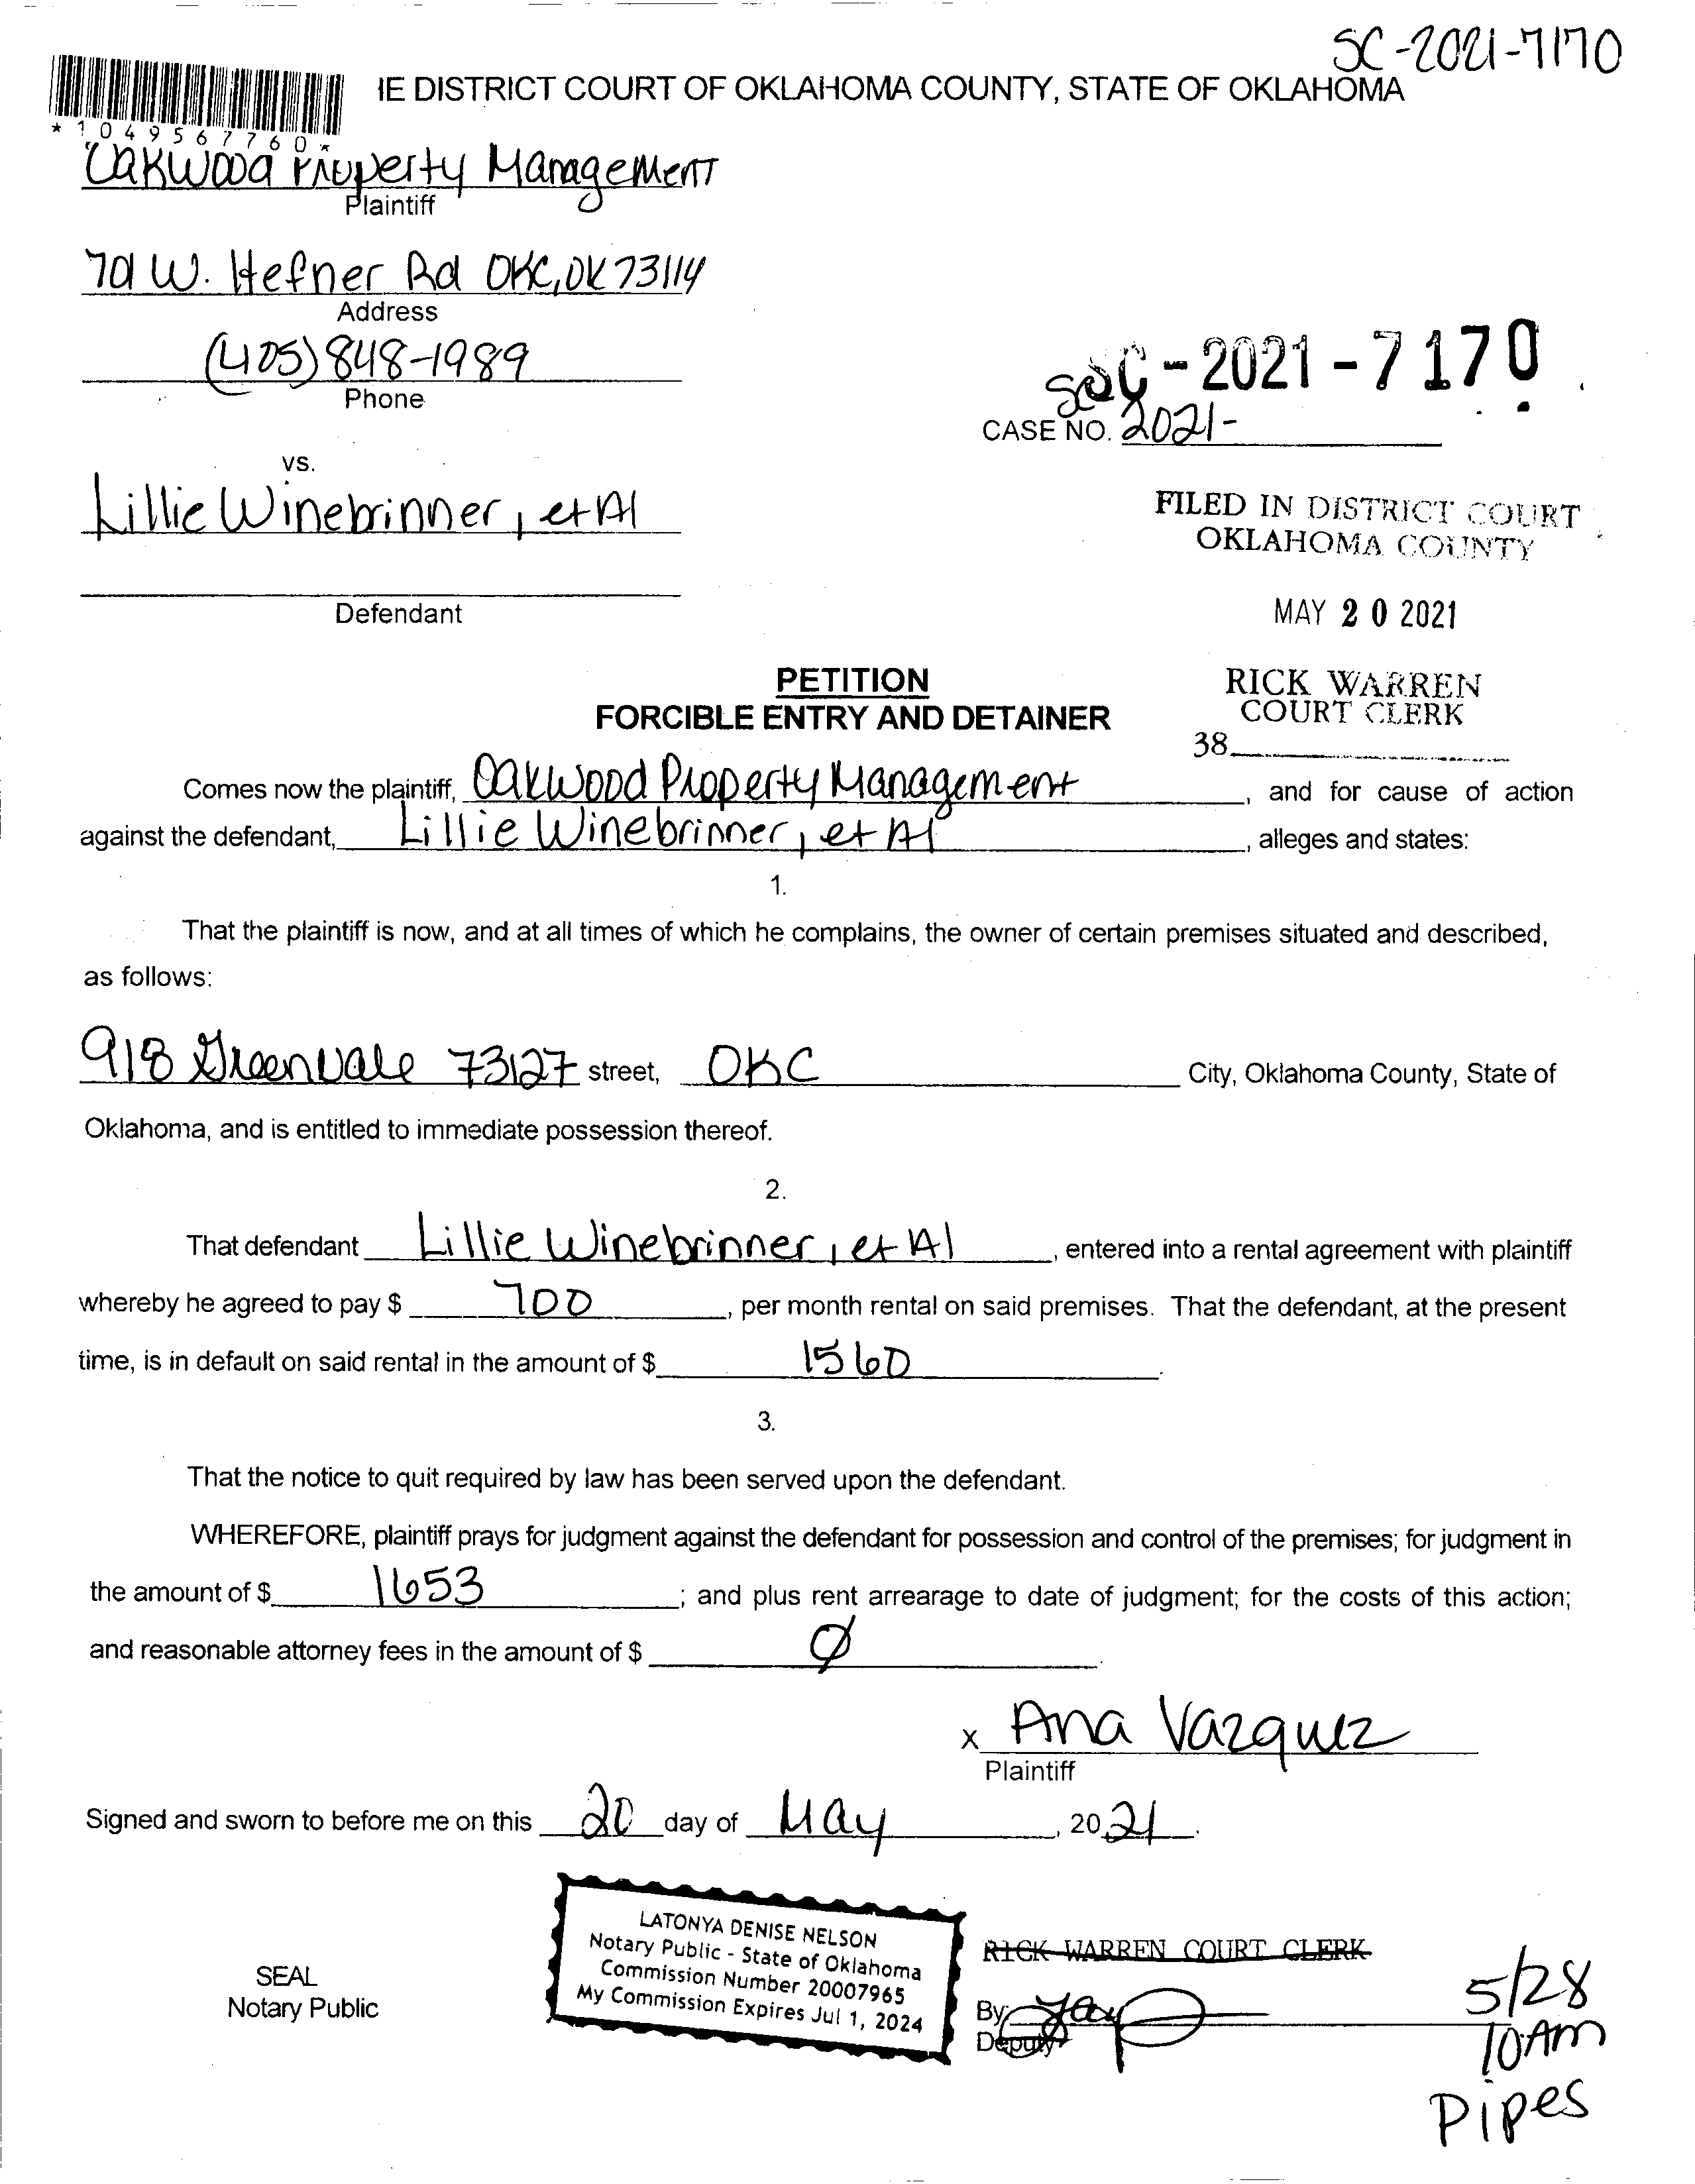 SC-2021-7170
IE DISTRICT COURT OF OKLAHOMA COUNTY, STATE OF OKLAHOMA
*1049567760*
Oakwood Property Management
Plaintiff
701 W. Hefner Rd OKC, OK 73114
Address
(405) 848-1989
Phone
SC-2021-7170
CASE NO. 2021-
vs.
Lillie Winebrinner, et Al
FILED IN DISTRICT COURT
OKLAHOMA COUNTY
Defendant
MAY 20 2021
PETITION
FORCIBLE ENTRY AND DETAINER
RICK WARREN
COURT CLERK
38
Comes now the plaintiff, Oakwood Property Management, and for cause of action
against the defendant, Lillie Winebrinner, et Al, alleges and states:
1.
That the plaintiff is now, and at all times of which he complains, the owner of certain premises situated and described,
as follows:
918 Greenvale 73127 street, OKC City, Oklahoma County, State of
Oklahoma, and is entitled to immediate possession thereof.
2.
That defendant Lillie Winebrinner, et Al, entered into a rental agreement with plaintiff
whereby he agreed to pay $ 700, per month rental on said premises. That the defendant, at the present
time, is in default on said rental in the amount of $ 1560.
3.
That the notice to quit required by law has been served upon the defendant.
WHEREFORE, plaintiff prays for judgment against the defendant for possession and control of the premises; for judgment in
the amount of $ 1653; and plus rent arrearage to date of judgment; for the costs of this action;
and reasonable attorney fees in the amount of $ Ø.
x Ana Vazquez
Plaintiff
Signed and sworn to before me on this 20 day of May, 2021.
LATONYA DENISE NELSON
Notary Public - State of Oklahoma
Commission Number 20007965
My Commission Expires Jul 1, 2024
SEAL
Notary Public
RICK WARREN COURT CLERK
By:
Deputy
5/28
10AM
Pipes